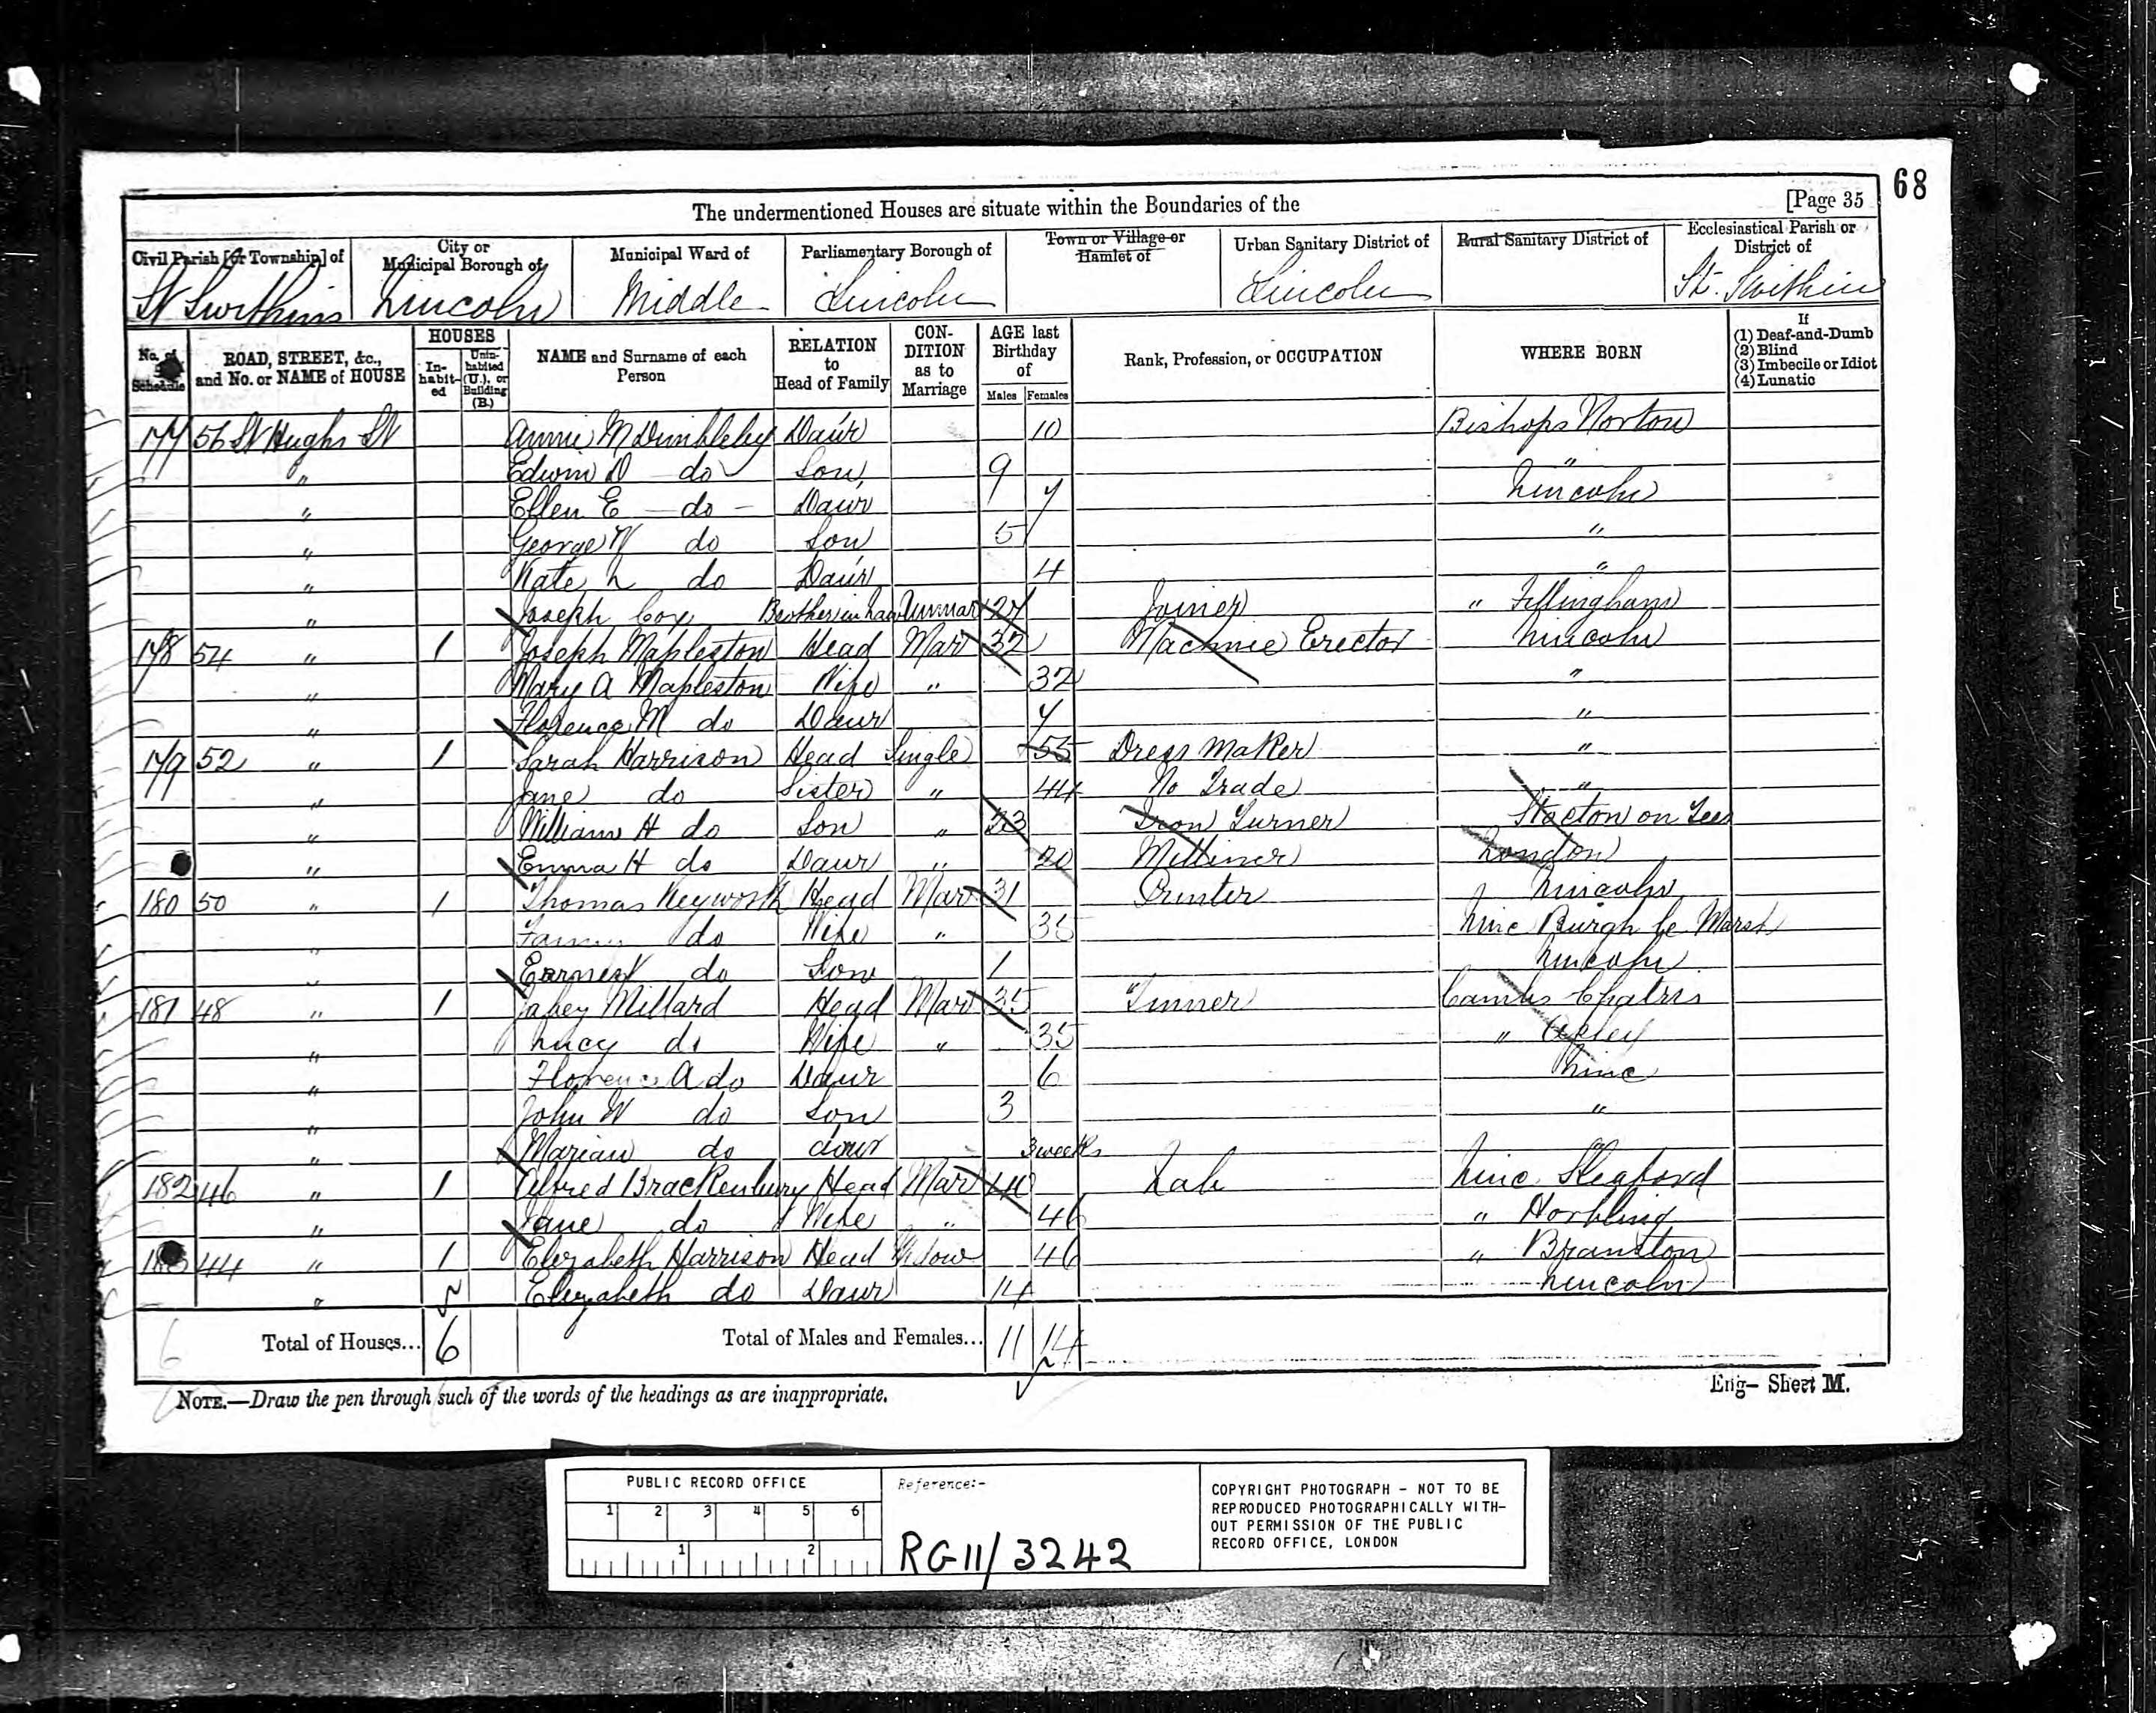 68
The undermentioned Houses are situate within the Boundaries of the [Page 35
Civil Parish [or Township] of City or Municipal Borough of Municipal Ward of Parliamentary Borough of Town or Village or Hamlet of Urban Sanitary District of Rural Sanitary District of Ecclesiastical Parish or District of
St Swithins Lincoln Middle Lincoln Lincoln St. Swithin
No. of Schedule ROAD, STREET, &c., and No. or NAME of HOUSE HOUSES Inhabited Uninhabited (U.), or Building (B.) NAME and Surname of each Person RELATION to Head of Family CONDITION as to Marriage AGE last Birthday of Males Females Rank, Profession, or OCCUPATION WHERE BORN If (1) Deaf-and-Dumb (2) Blind (3) Imbecile or Idiot (4) Lunatic
177 56 St Hughs St Annie M Dimbleby Daur 10 Bishops Norton
" Edwin D do Son 9 "
" Ellen E do Daur 7 Lincoln
" George W do Son 5 "
" Kate L do Daur 4 "
" Joseph Cox Brother in Law Unmar 27 Joiner " Fillingham
178 54 " 1 Joseph Mapleston Head Mar 32 Machine Erector Lincoln
" Mary A Mapleston Wife " 32 "
" Florence M do Daur 7 "
179 52 " 1 Sarah Harrison Head Single 55 Dress Maker "
" Jane do Sister " 44 No Trade "
" William H do Son " 23 Iron Turner Stocton on Tees
" Emma H do Daur " 20 Milliner London
180 50 " 1 Thomas Keyworth Head Mar 31 Printer Lincoln
" do Wife " 35 Linc Burgh le Marsh
" Earnest do Son 1 Lincoln
181 48 " 1 Jabez Millard Head Mar 35 Tinner Cambs Chatris
" Lucy do Wife " 35 "
" Florence A do Daur 6 Linc
" John W do Son 3 "
" Marian do daur 3 weeks
182 46 " 1 Alfred Brackenbury Head Mar Lab Linc Sleaford
" Jane do Wife " 46 " Horbling
44 " 1 Elizabeth Harrison Head Widow 46 " Branston
" Elizabeth do Daur 14 Lincoln
6 Total of Houses... 6 Total of Males and Females... 11 14
NOTE.—Draw the pen through such of the words of the headings as are inappropriate. Eng– Sheet M.
PUBLIC RECORD OFFICE
1 2 3 4 5 6
1 2
Reference:-
RG11/3242
COPYRIGHT PHOTOGRAPH - NOT TO BE
REPRODUCED PHOTOGRAPHICALLY WITH-
OUT PERMISSION OF THE PUBLIC
RECORD OFFICE, LONDON